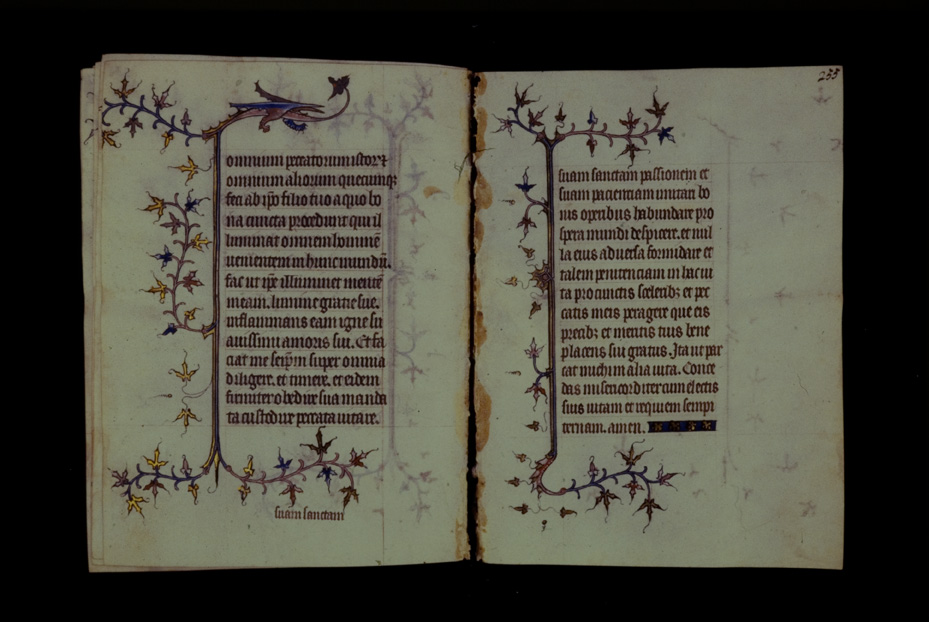 omnium peccatorum istorꝝ et
omnium aliorum quecunqꝫ
feci ab ip̄o filio tuo a quo bo
na cuncta procedunt qui il
luminat omnem hominē
uenientem in hunc mundū.
fac ut ip̄e illuminet mentē
meam. lumine gratie sue.
inflammans eam igne su
auissimi amoris sui. Et fa
ciat me seip̄m super omnia
diligere. et timere. et eidem
firmiter obedire sua manda
ta custodire peccata uitare.
suam sanctam
255
suam sanctam passionem et
suam pacienciam imitari bo
nis operibus habundare pro
spera mundi despicere. et nul
la eius aduersa formidare et
talem penitenciam in hac ui
ta pro cunctis sceleribꝫ et pec
catis meis peragere que eis
precibꝫ et mentis tuis bene
placens sui gratus. Ita ut par
cat michi in alia uita. Conce
das misericorditer cum electis
suis uitam et requiem sempi
ternam. amen.